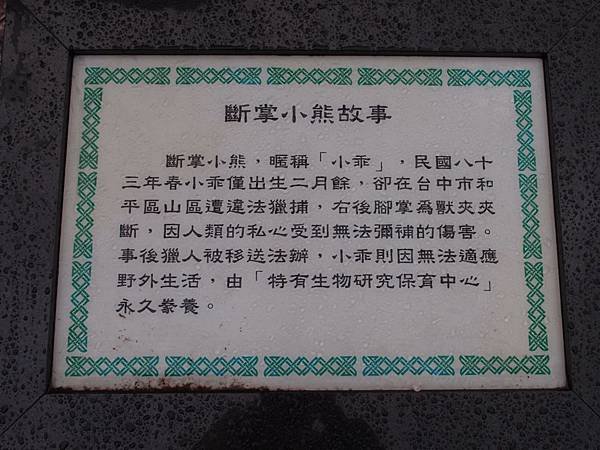 斷掌小熊故事
斷掌小熊，暱稱「小乖」，民國八十
三年春小乖僅出生二月餘，卻在台中市和
平區山區遭違法獵捕，右後腳掌為獸夾夾
斷，因人類的私心受到無法彌補的傷害。
事後獵人被移送法辦，小乖則因無法適應
野外生活，由「特有生物研究保育中心」
永久豢養。